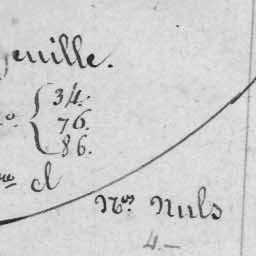 euille.
o { 34.
76.
86.
me cl
Nos Nuls
4.-